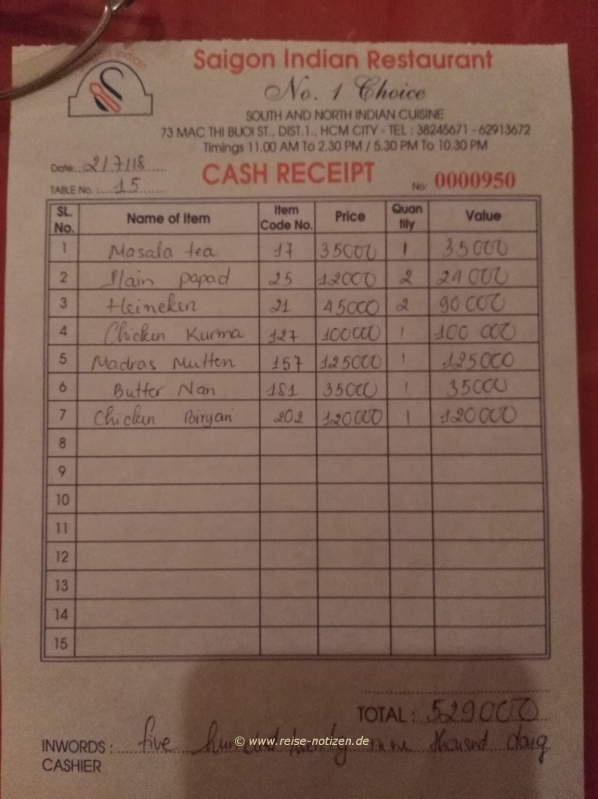 Saigon Indian
Saigon Indian Restaurant
No. 1 Choice
SOUTH AND NORTH INDIAN CUISINE
73 MAC THI BUOI ST., DIST.1., HCM CITY - TEL : 38245671 - 62913672
Timings 11.00 AM To 2.30 PM / 5.30 PM To 10.30 PM
Date: 2/7/18
CASH RECEIPT
TABLE No. : 15
No: 0000950
SL. No. Name of Item Item Code No. Price Quan tity Value
1 Masala tea 17 35000 1 35000
2 Plain papad 25 12000 2 24 000
3 Heineken 21 45000 2 90 000
4 Chicken Kurma 127 100000 1 100 000
5 Madras Mutton 157 125000 1 125000
6 Butter Nan 181 35000 1 35000
7 Chicken Biryani 202 120000 1 120000
8
9
10
11
12
13
14
15
TOTAL : 529000
INWORDS : five hundred twenty nine thousand dong
CASHIER
© www.reise-notizen.de